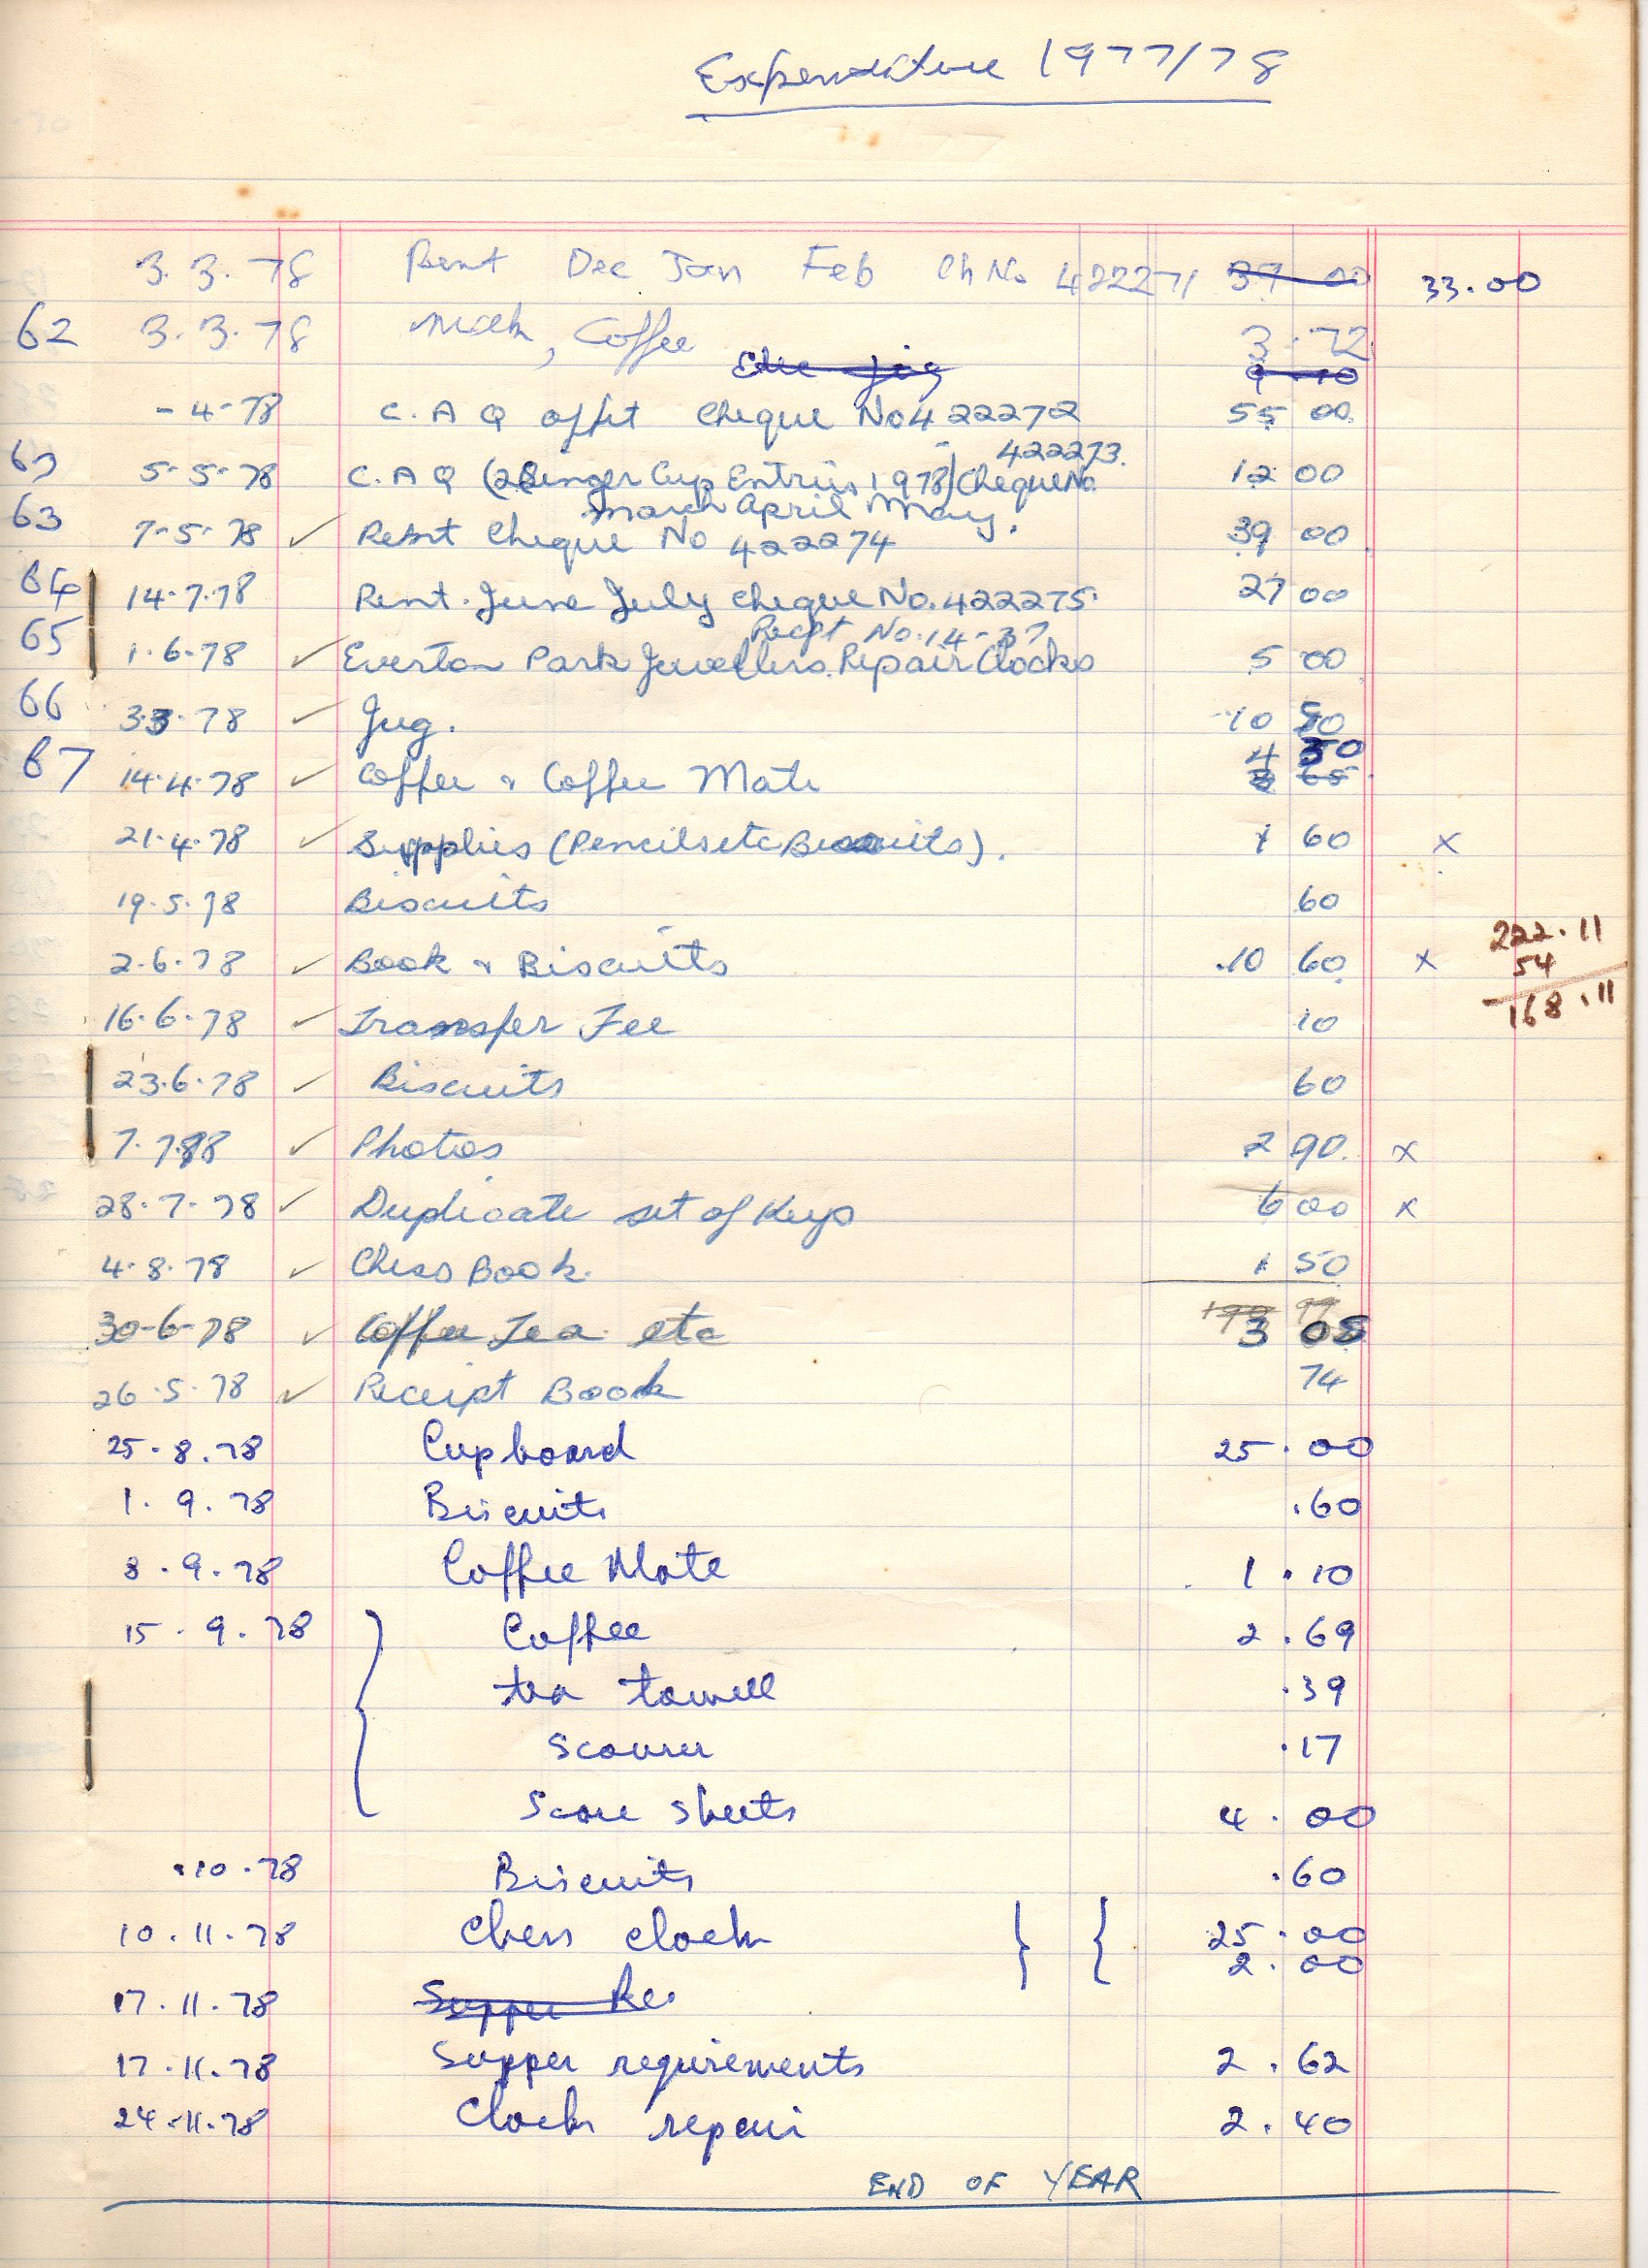 Expenditure 1977/78
3. 3. 78 Rent Dec Jan Feb Ch No 422271 39 00 33.00
62 3. 3. 78 Milk, Coffee 3.72
Elec Jug 9.10
- 4 - 78 C. A Q affit Cheque No 422272 55 00
422273.
63 5-5-78 C. A Q (2 Singer Cup Entries 1978) Cheque No 12 00
March April May.
63 7-5-78 ✓ Rent Cheque No 422274 39 00
64 14.7.78 Rent. June July Cheque No. 422275 27 00
Recpt No. 14-37
65 1.6.78 ✓ Everton Park Jewellers. Repair Clocks 5 00
66 3.3.78 ✓ Jug. 10 50
4 30
67 14.4.78 ✓ Coffee & Coffee Mate 3 65
21.4.78 ✓ Supplies (Pencils etc Biscuits). 1 60 x
19.5.78 Biscuits 60
222.11
2.6.78 ✓ Book & Biscuits 10 60 x 54
168.11
16.6.78 ✓ Transfer Fee 10
23.6.78 ✓ Biscuits 60
7.7.78 ✓ Photos 2 90. x
28.7.78 ✓ Duplicate set of Keys 6 00 x
4.8.78 ✓ Chess Book. 1 50
30-6-78 ✓ Coffee Tea etc 3 08
26.5.78 ✓ Receipt Book 74
25.8.78 Cupboard 25.00
1.9.78 Biscuits .60
8.9.78 Coffee Mate 1.10
15.9.78 Coffee 2.69
tea towell .39
Scourer .17
Score sheets 4.00
.10.78 Biscuits .60
10.11.78 Chess clock 25.00
2.00
17.11.78 Supper Re
17.11.78 Supper requirements 2.62
24.11.78 Clock repair 2.40
END OF YEAR